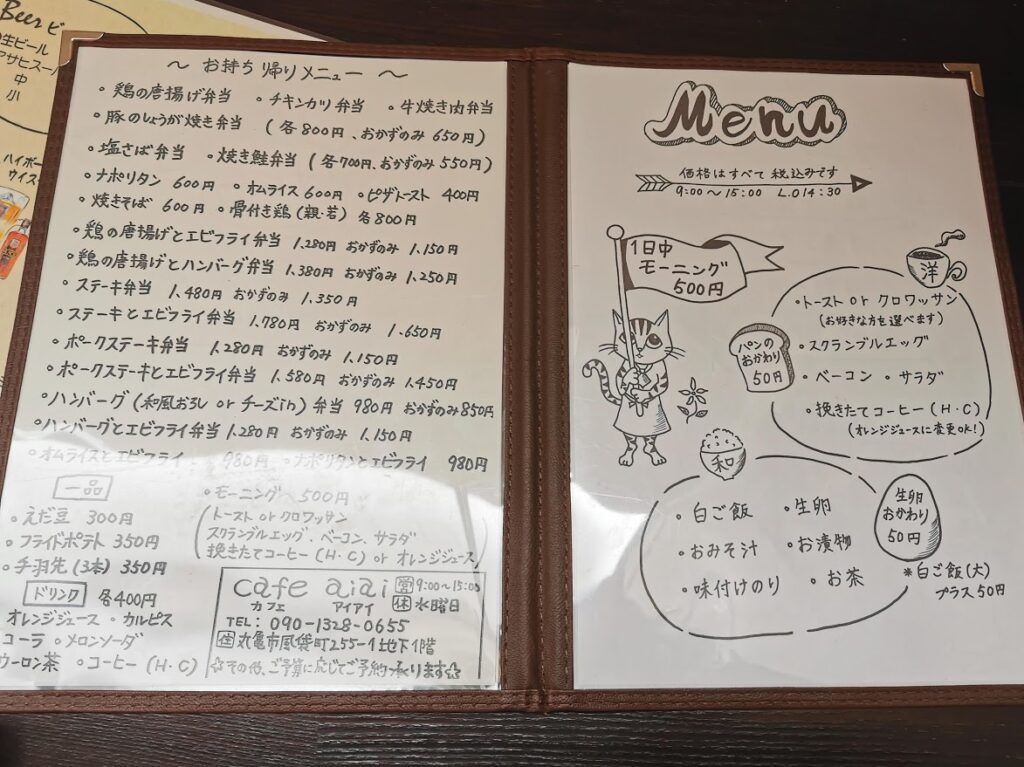 Beer ビ
生ビール
アサヒスー
中
小
ハイボー
ウイス
～ お持ち帰りメニュー ～
・鶏の唐揚げ弁当 ・チキンカツ弁当 ・牛焼き肉弁当
・豚のしょうが焼き弁当 (各800円、おかずのみ650円)
・塩さば弁当 ・焼き鮭弁当 (各700円、おかずのみ550円)
・ナポリタン 600円 ・オムライス 600円 ・ピザトースト 400円
・焼きそば 600円 ・骨付き鶏(親・若) 各800円
・鶏の唐揚げとエビフライ弁当 1.280円 おかずのみ 1.150円
・鶏の唐揚げとハンバーグ弁当 1.380円 おかずのみ 1.250円
・ステーキ弁当 1.480円 おかずのみ 1.350円
・ステーキとエビフライ弁当 1.780円 おかずのみ 1.650円
・ポークステーキ弁当 1.280円 おかずのみ 1.150円
・ポークステーキとエビフライ弁当 1.580円 おかずのみ 1.450円
・ハンバーグ(和風おろし or チーズin)弁当 980円 おかずのみ850円
・ハンバーグとエビフライ弁当 1.280円 おかずのみ 1.150円
・オムライスとエビフライ 980円 ・ナポリタンとエビフライ 980円
一品
・えだ豆 300円
・フライドポテト 350円
・手羽先(3本) 350円
ドリンク 各400円
オレンジジュース ・カルピス
コーラ ・メロンソーダ
ウーロン茶 ・コーヒー(H・C)
・モーニング 500円
(トースト or クロワッサン
スクランブルエッグ、ベーコン、サラダ
挽きたてコーヒー(H・C) or オレンジジュース)
cafe aiai 営 9:00～15:00
カフェ アイアイ 休 水曜日
TEL: 090-1328-0655
住 丸亀市風袋町255-1地下1階
☆その他、ご予算に応じてご予約承ります☆
Menu
価格はすべて税込みです
9:00～15:00 L.O14:30
1日中
モーニング
500円
洋
・トースト or クロワッサン
(お好きな方を選べます)
・スクランブルエッグ
・ベーコン ・サラダ
・挽きたてコーヒー(H・C)
(オレンジジュースに変更OK!)
パンの
おかわり
50円
和
・白ご飯 ・生卵
・おみそ汁 ・お漬物
・味付けのり ・お茶
生卵
おかわり
50円
＊白ご飯(大)
プラス50円